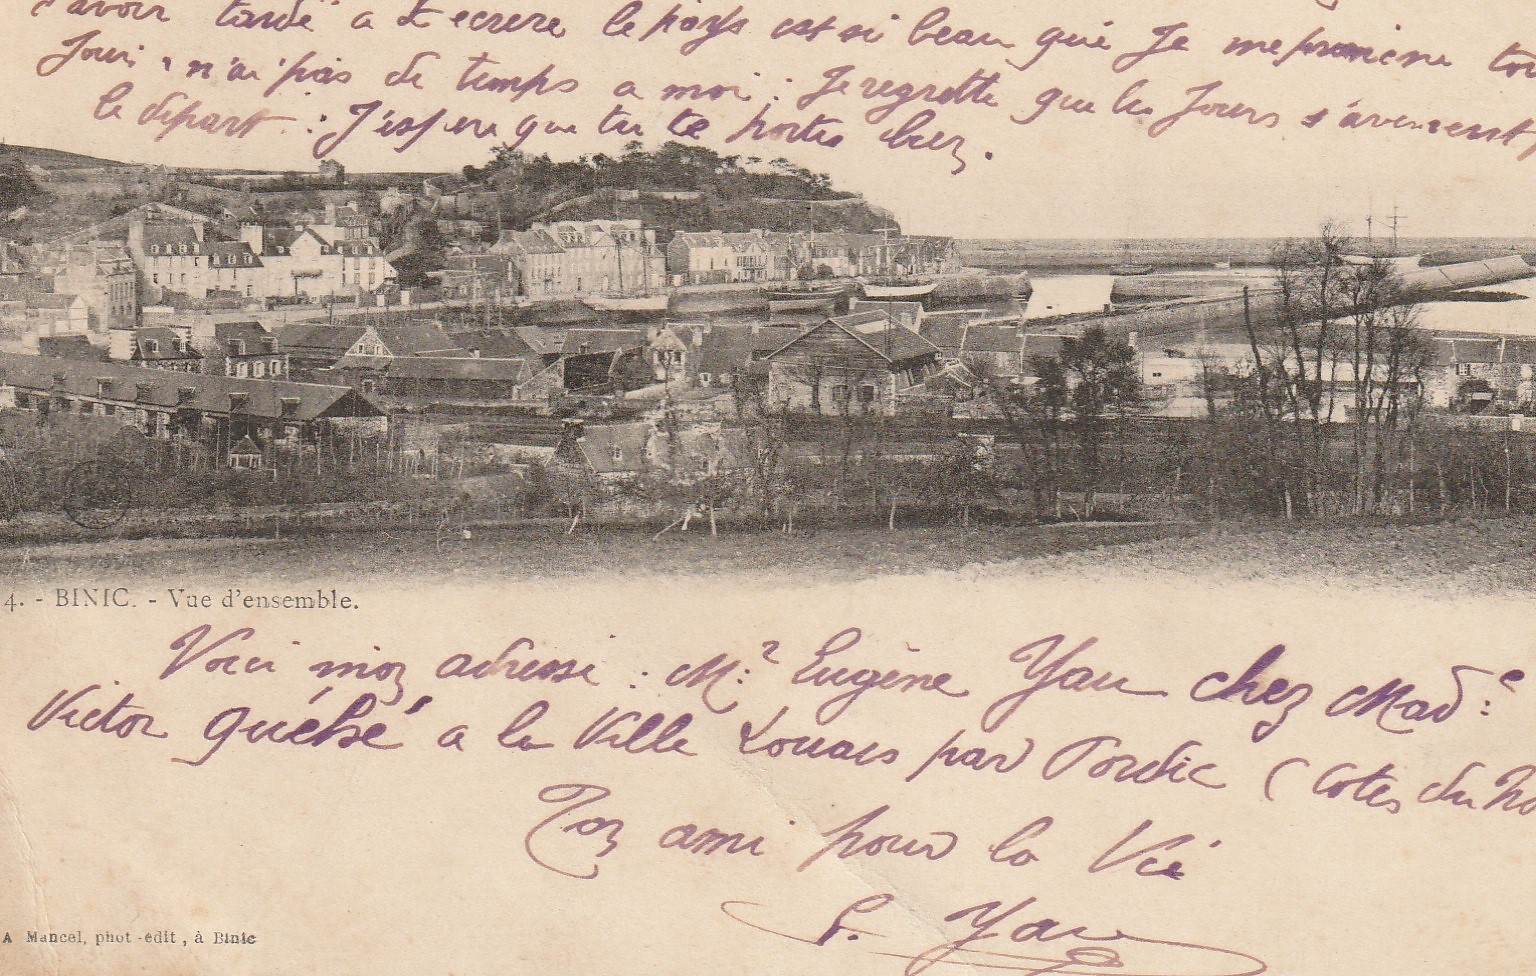 d'avoir tardé a t ecrire le pays est si beau que Je me promene tou
Jour, n'ai pas de temps a moi : Je regrette que les Jours s'avencent
le départ : J'espere que tu te portes bien.
4. - BINIC. - Vue d'ensemble.
Voici mon adresse : Mr Eugène Yau chez Made
Victor Quéhé a la Ville Louais par Pordic ( Cotes du No
Ton ami pour la Vie
E. Yau
A Mancel, phot -édit , à Binic